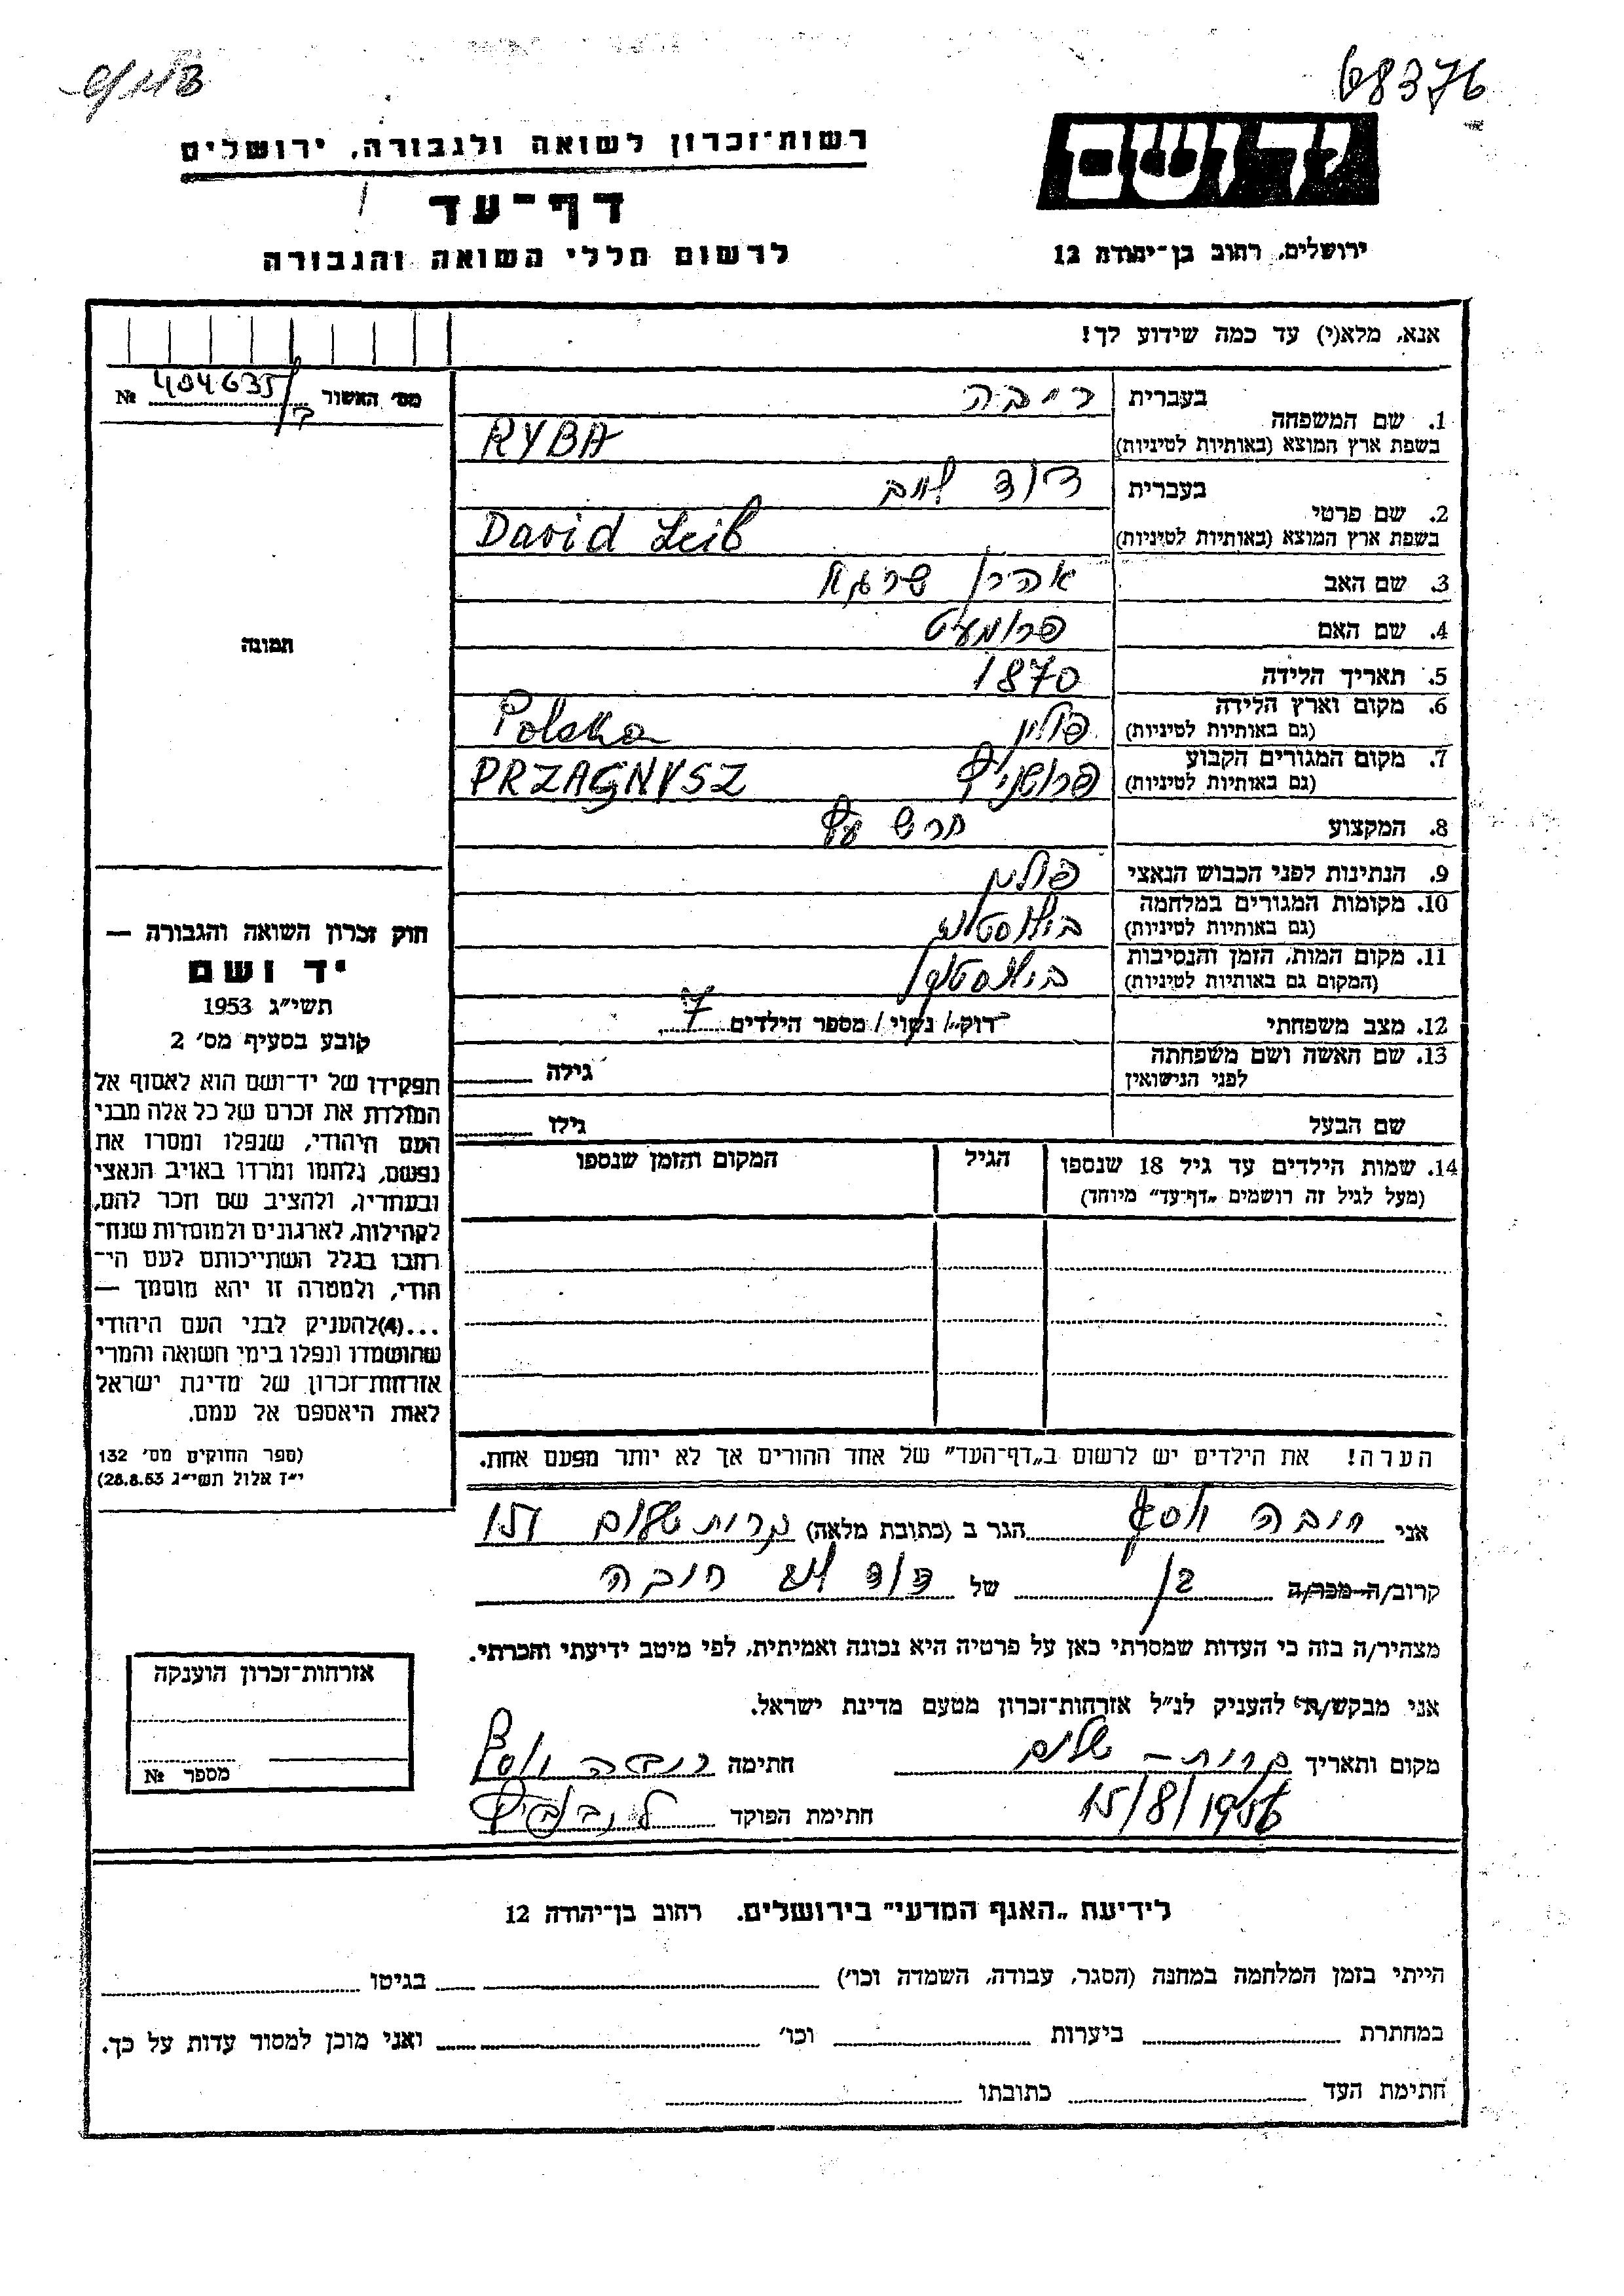 68376
רשות־זכרון לשואה ולגבורה, ירושלים
יד ושם
דף־עד
לרשום חללי השואה והגבורה
ירושלים, רחוב בן־יהודה 12
אנא, מלא(י) עד כמה שידוע לך!
מס' האשור 404635 №
1. שם המשפחה
בעברית ריבה
בשפת ארץ המוצא (באותיות לטיניות) RYBA
2. שם פרטי
בעברית דוד לייב
בשפת ארץ המוצא (באותיות לטיניות) David Leib
3. שם האב אהרן שרגא
4. שם האם פרומעט
5. תאריך הלידה 1870
6. מקום וארץ הלידה (גם באותיות לטיניות) פולין Polska
7. מקום המגורים הקבוע (גם באותיות לטיניות) פרושניץ PRZAGNYSZ
8. המקצוע חרש עץ
9. הנתינות לפני הכבוש הנאצי פולין
10. מקומות המגורים במלחמה (גם באותיות לטיניות) ביאליסטוק
11. מקום המות, הזמן והנסיבות (המקום גם באותיות לטיניות) ביאליסטוק
12. מצב משפחתי רווק/ נשוי / מספר הילדים 7
13. שם האשה ושם משפחתה לפני הנישואין גילה
שם הבעל גילו
14. שמות הילדים עד גיל 18 שנספו הגיל המקום והזמן שנספו
(מעל לגיל זה רושמים „דף־עד" מיוחד)
הערה! את הילדים יש לרשום ב„דף־העד" של אחד ההורים אך לא יותר מפעם אחת.
תמונה
חוק זכרון השואה והגבורה —
יד ושם
תשי"ג 1953
קובע בסעיף מס' 2
תפקידו של יד־ושם הוא לאסוף אל
המולדת את זכרם של כל אלה מבני
העם היהודי, שנפלו ומסרו את
נפשם, נלחמו ומרדו באויב הנאצי
ובעוזריו, ולהציב שם וזכר להם,
לקהילות, לארגונים ולמוסדות שנח־
רבו בגלל השתייכותם לעם הי־
הודי, ולמטרה זו יהא מוסמך —
...(4)להעניק לבני העם היהודי
שהושמדו ונפלו בימי השואה והמרי
אזרחות־זכרון של מדינת ישראל
לאות היאספם אל עמם.
(ספר החוקים מס' 132
י"ז אלול תשי"ג 28.8.53)
אני ריבה יוסף הגר ב (כתובת מלאה) ברות שלום
קרוב/ה מכר/ה בן של דוד לייב ריבה
מצהיר/ה בזה כי העדות שמסרתי כאן על פרטיה היא נכונה ואמיתית, לפי מיטב ידיעתי והכרתי.
אני מבקש/ת להעניק לנ"ל אזרחות־זכרון מטעם מדינת ישראל.
מקום ותאריך ברות – שלום חתימה ריבה יוסף
15/8/1956 חתימת הפוקד
אזרחות־זכרון הוענקה
מספר №
לידיעת „האגף המדעי" בירושלים, רחוב בן־יהודה 12
הייתי בזמן המלחמה במחנה (הסגר, עבודה, השמדה וכו') בגיטו
במחתרת ביערות וכו' ואני מוכן למסור עדות על כך.
חתימת העד כתובתו